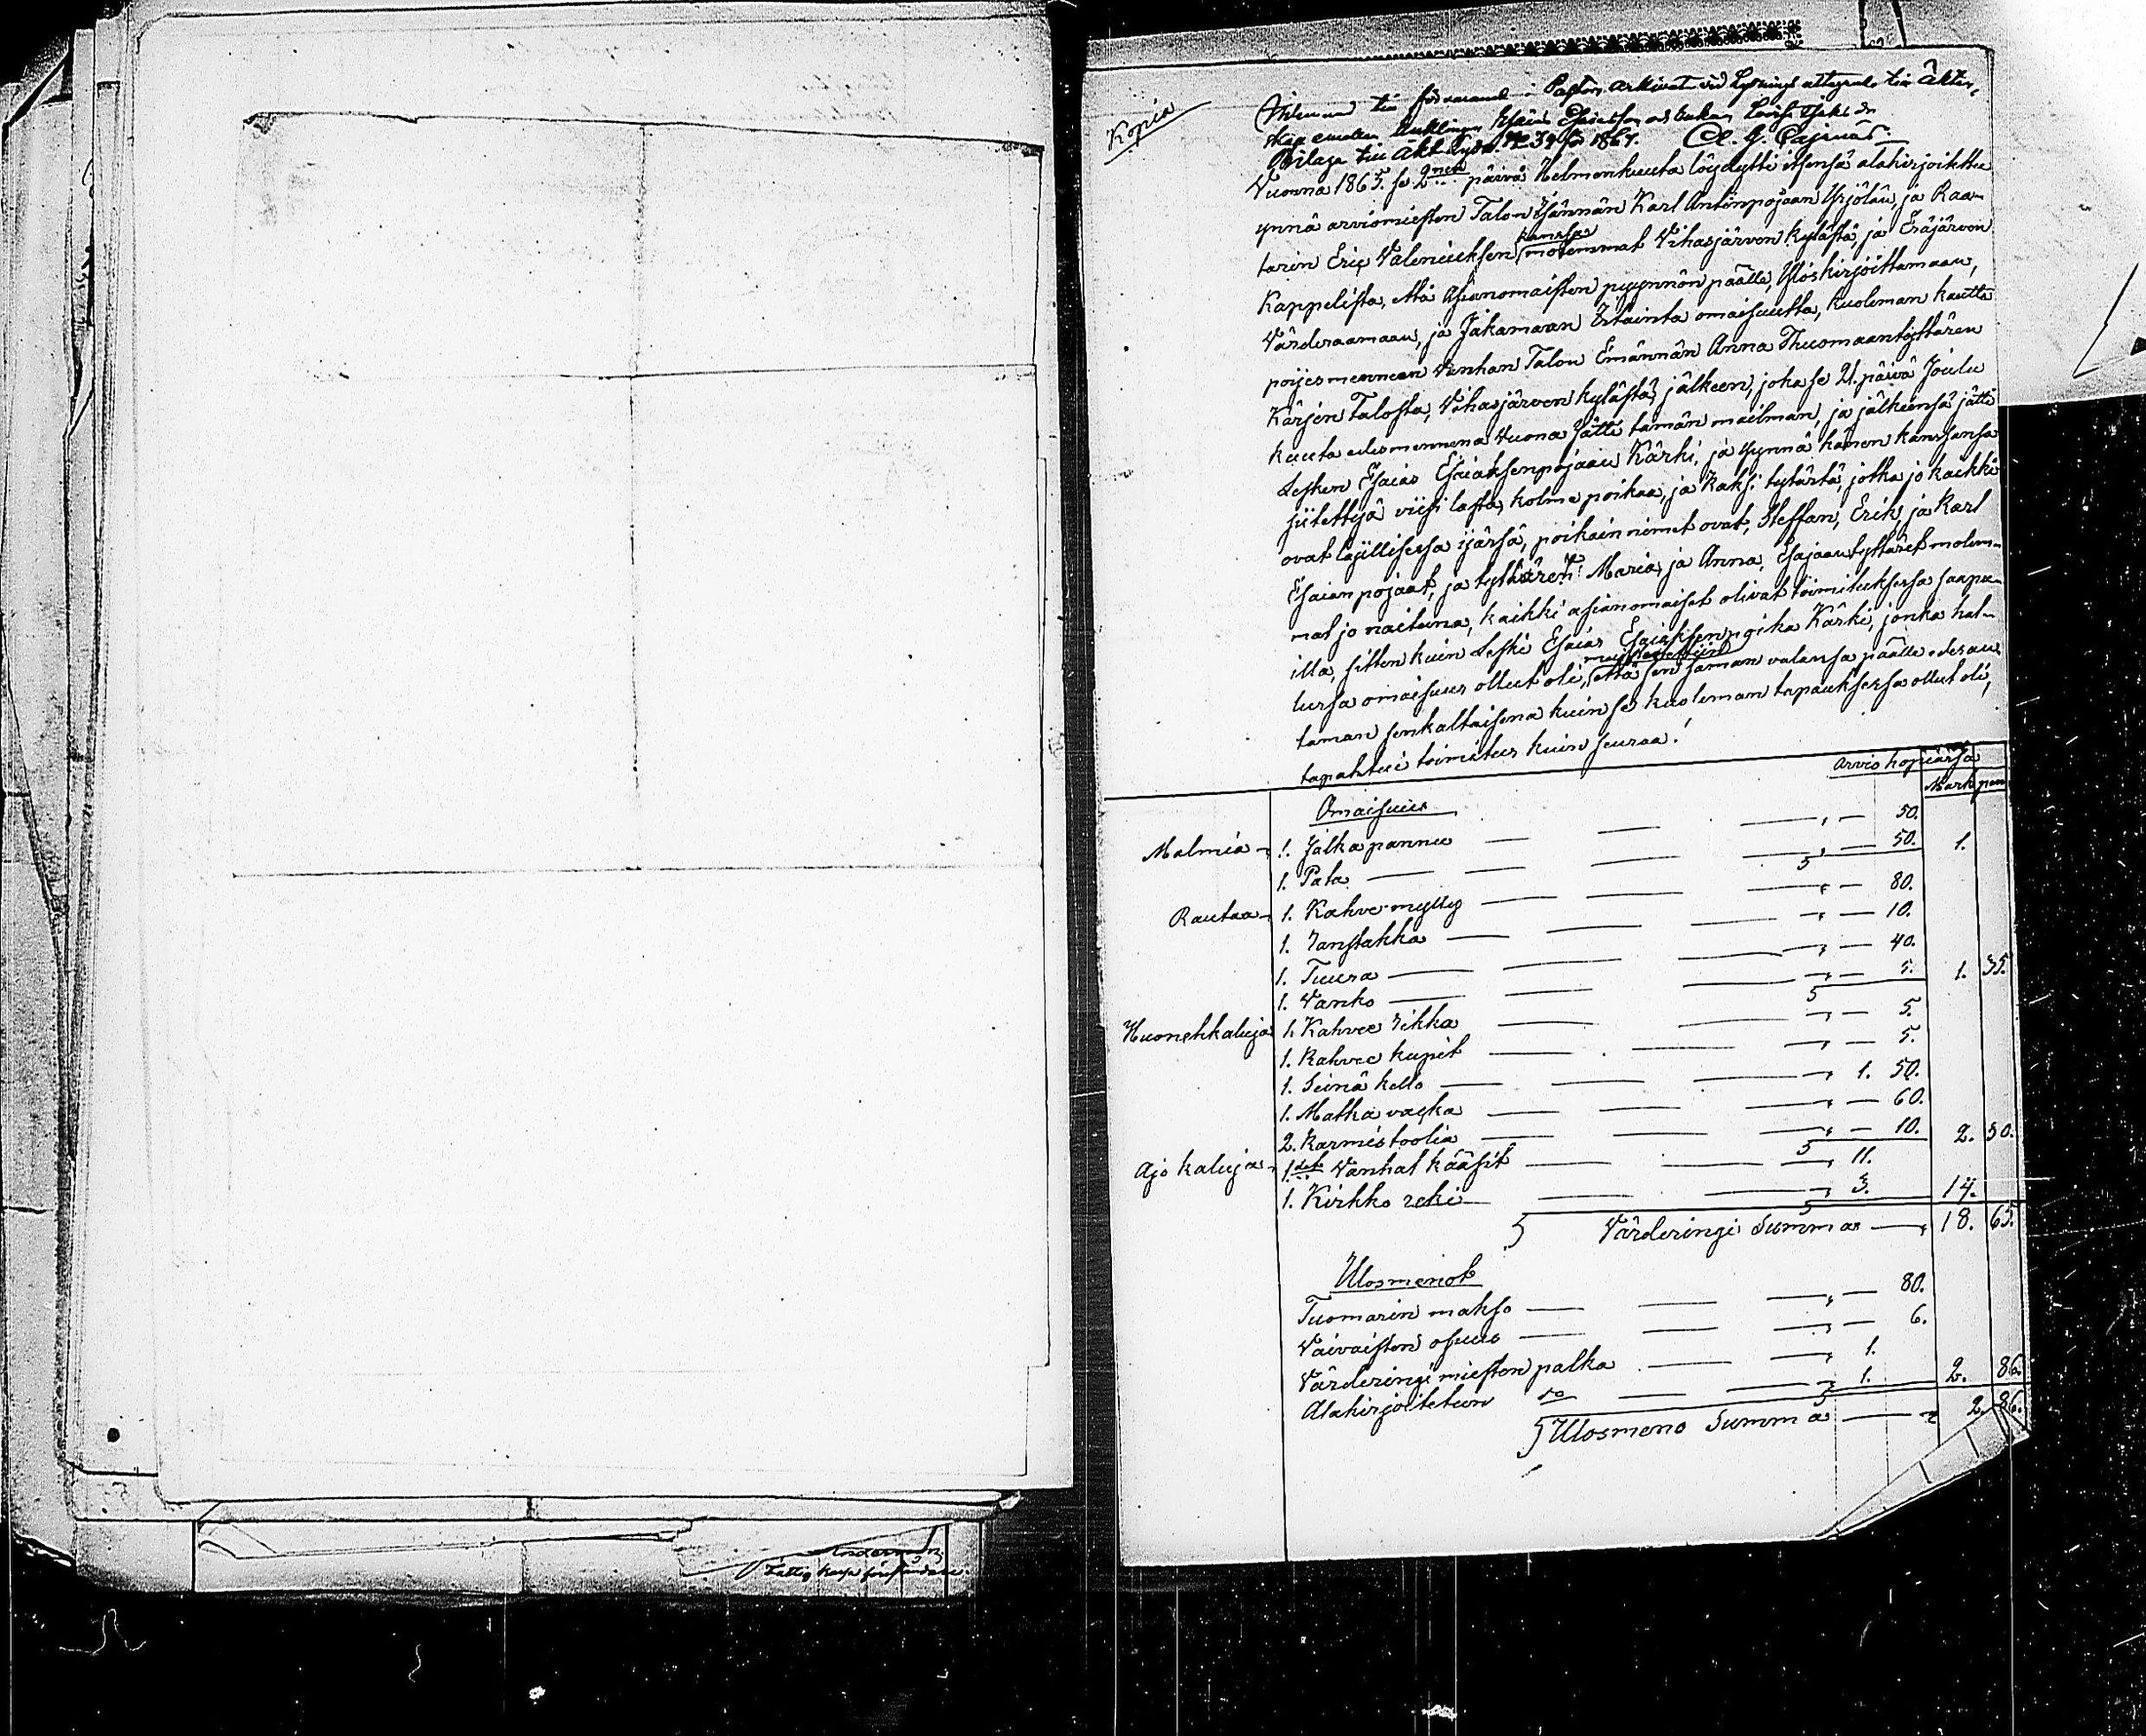 Kopia
till förvarande i Pastors Arkivet vid Lysnings uttagande till Äkten-
skap emellan Enklingen Esaias Esaiasson och Enkan
Bilaga till Äkt. Lysn. No 39 för 1867.
Vuonna 1865 se 2nen päivä Helmenkuuta löydytti itsensä alakirjoitettu
ynnä arviomiesten Talon Isännän Karl Antinpojaan Yrjölän, ja Raa-
tarin Eric Valeniuksen kanssa molemmat Vihasjärven kylästä, ja Eräjärven
Kappelista, että Asianomaisten pyynnön päälle, Ylöskirjoittamaan,
Värderaamaan, ja Jakamaan Irtainta omaisuutta, kuoleman kautta
poijesmenneen Vanhan Talon Emännän Anna Thuomaantyttären
Kärjen Talosta, Vihasjärven kylästä, jälkeen, joka se 21. päivä Joulu
kuuta edesmennenä Vuona Jätti tämän mailman, ja jälkeensä jätti
Lesken Esaias Esaiaksenpojaan Kärki, ja ynnä hänen kanssansa
siitettyä viisi lasta, kolme poikaa, ja kaksi tytärtä, jotka jo kaikki
ovat laillisessa ijässä, poikain nimet ovat, Steffan, Erik, ja Karl
Esaian pojaat, ja tyttären: Maria, ja Anna, Esajaantyttäret molem-
mat jo naituna, kaikki asianomaiset olivat toimituksessa saapu-
illa, sitten kuin Leski Esaias Esaiaksenpoika Kärki, jonka hal-
lussa omaisuus ollut oli, että sen saman valansa päälle edesan-
taman senkaltaisena kuin se kuoleman tapauksessa ollut oli,
tapahtui toimitus kuin seuraa!
Arvio hopiassa
Mark pen
Omaisuus
Malmia 1. Jalka pannu 50.
1. Pata 50. 1.
Rautaa 1. Kahve mylly 80.
1. Hanstakka 10.
1. Tuura 40.
1. Vanko 5. 1. 35.
Huonekkaluja 1. Kahvee Sikka 5.
1. Kahvee kupit 5.
1. Seinä kello 1. 50.
1. Matka vaska 60.
2. Karmistoolia 10. 2. 30.
Ajo kaluja 1. Vanhat kääsit 11.
1. Kirkko reki 3. 14.
Värderingi Summa 18. 65.
Ulosmenot
Tuomarin makso 80.
Vaivaisten osuus 6.
Värderingi miesten palka 1.
Alakirjoitetun do 1. 2. 86.
Ulosmeno Summa 2. 86.